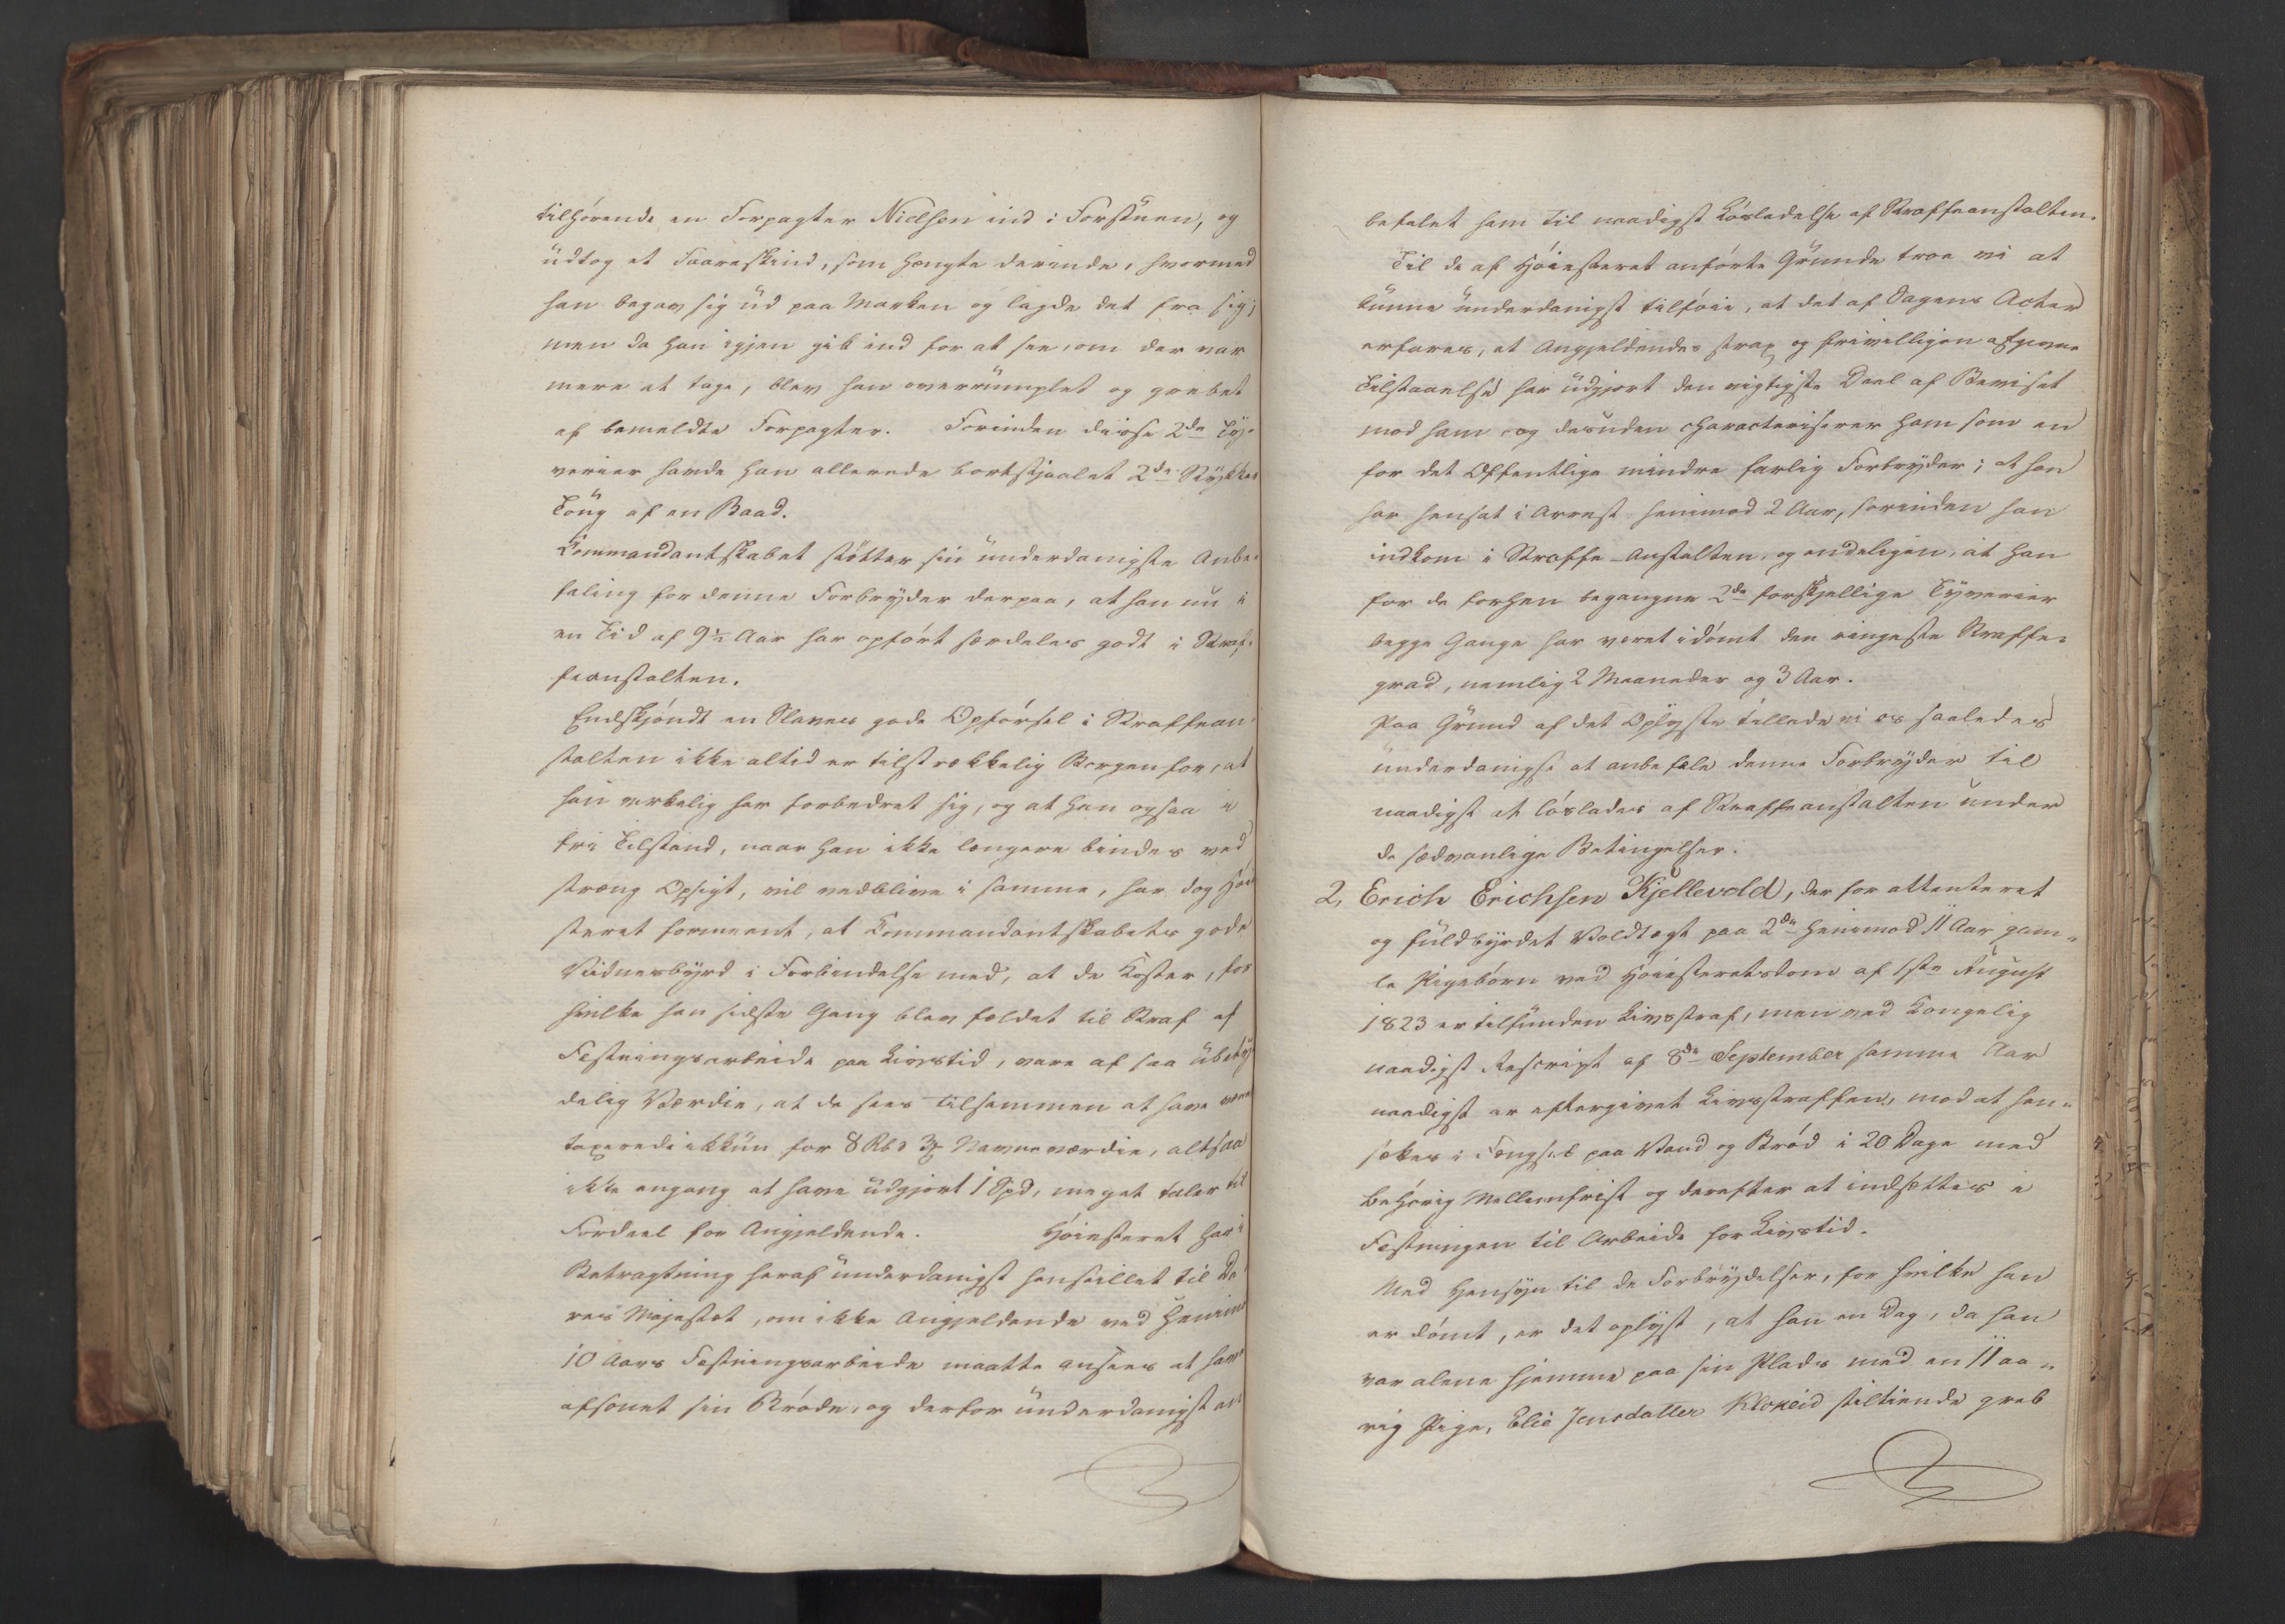 tilhörende en Forpagter Nielsen ind i Forstuen, og
udtog et Faareskind, som hængte derinde, hvormed
han begav sig ud paa Marken og lagde det fra sig;
men da han igjen gik ind for at see, om der var
mere at tage, blev han overrumplet og grebet
af bemeldte Forpagter. Forinden disse 2de Ty-
verier havde han allerede bortstjaalet 2de Stykker
Toug af en Baad.
Commandantskabet stötter sin underdanigste Anbe-
faling for denne Forbryder derpaa, at han nu i
en Tid af 9½ Aar har opfört særdeles godt i Straf-
feanstalten.
Endskjöndt en Slaves gode Opförsel i Straffean-
stalten ikke altid er tilstrækkelig Borgen for, at
han virkelig har forbedret sig, og at han ogsaa i
fri Tilstand, naar han ikke længere bindes ved
streng Opsigt, vil vedblive i samme, har dog Höie-
steret formeent, at Commandantskabets gode
Vidnesbyrd i Forbindelse med, at de Koster, for
hvilke han sidste Gang blev fældet til Straf af
Fæstningsarbeide paa Livstid, vare af saa übety-
delig Værdie, at de sees tilsammen at have været
taxerede ikkun for 8 Rbd 3 ß Navneværdie, altsaa
ikke engang at have udgjort 1 Spd, meget taler til
Fordeel for Angjeldende. Höiesteret har i
Betragtning heraf underdanigst henstillet til De-
res Majestæt, om ikke Angjeldende ved henimod
10 Aars Fæstningsarbeide maatte ansees at have
afsonet sin Bröde, og derfor underdanigst an-
befalet ham til naadigst Lösladelse af Straffeanstalten.
Til de af Höiesteret anförte Grunde troe vi at
kunne underdanigst tilföie, at det af Sagens Acter
erfares, at Angjeldendes strax og frivilligen afgivne
Tilstaaelse har udgjort den vigtigste Deel af Beviset
mod ham og desuden characteriserer ham som en
for det Offentlige mindre farlig Forbryder; at han
har hensat i Arrest henimod 2 Aar, forinden han
indkom i Straffe-Anstalten, og endeligen, at han
for de forhen begangne 2de forskjellige Tyverier
begge Gange har været idömt den ringeste Straffe-
grad, nemlig 2 Maaneder og 3 Aar.
Paa Grund af det Oplyste tillade vi os saaledes
underdanigst at anbefale denne Forbryder til
naadigst at löslades af Straffeanstalten under
de sædvanlige Betingelser.
2, Erich Erichsen Kjellevold, der for attenteret
og fuldbyrdet Voldtægt paa 2de henimod 11 Aar gam-
le Pigebörn ved Höiesteretsdom af 1ste August
1823 er tilfunden Livsstraf, men ved Kongelig
naadigst Rescript af 8de September samme Aar
naadigst er eftergivet Livsstraffen, mod at hen-
sættes i Fængsel paa Vand og Bröd i 20 Dage med
behörig Mellemfrist og derefter at indsættes i
Fæstningen til Arbeide for Livstid.
Med Hensyn til de Forbrydelser, for hvilke han
er dömt, er det oplyst, at han en Dag, da han
var alene hjemme paa sin Plads med en 11 aa-
rig Pige, Elie Jensdatter Klokeid stiltiende greb